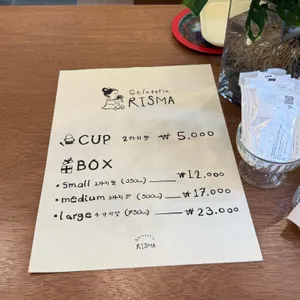 Gelateria
RISMA
CUP 2가지맛 ₩ 5.000
BOX
• small 2가지맛 (350ml) ₩ 12,000
• medium 3가지맛 (500ml) ₩ 17.000
• large 4가지맛 (750ml) ₩ 23.000
RISMA